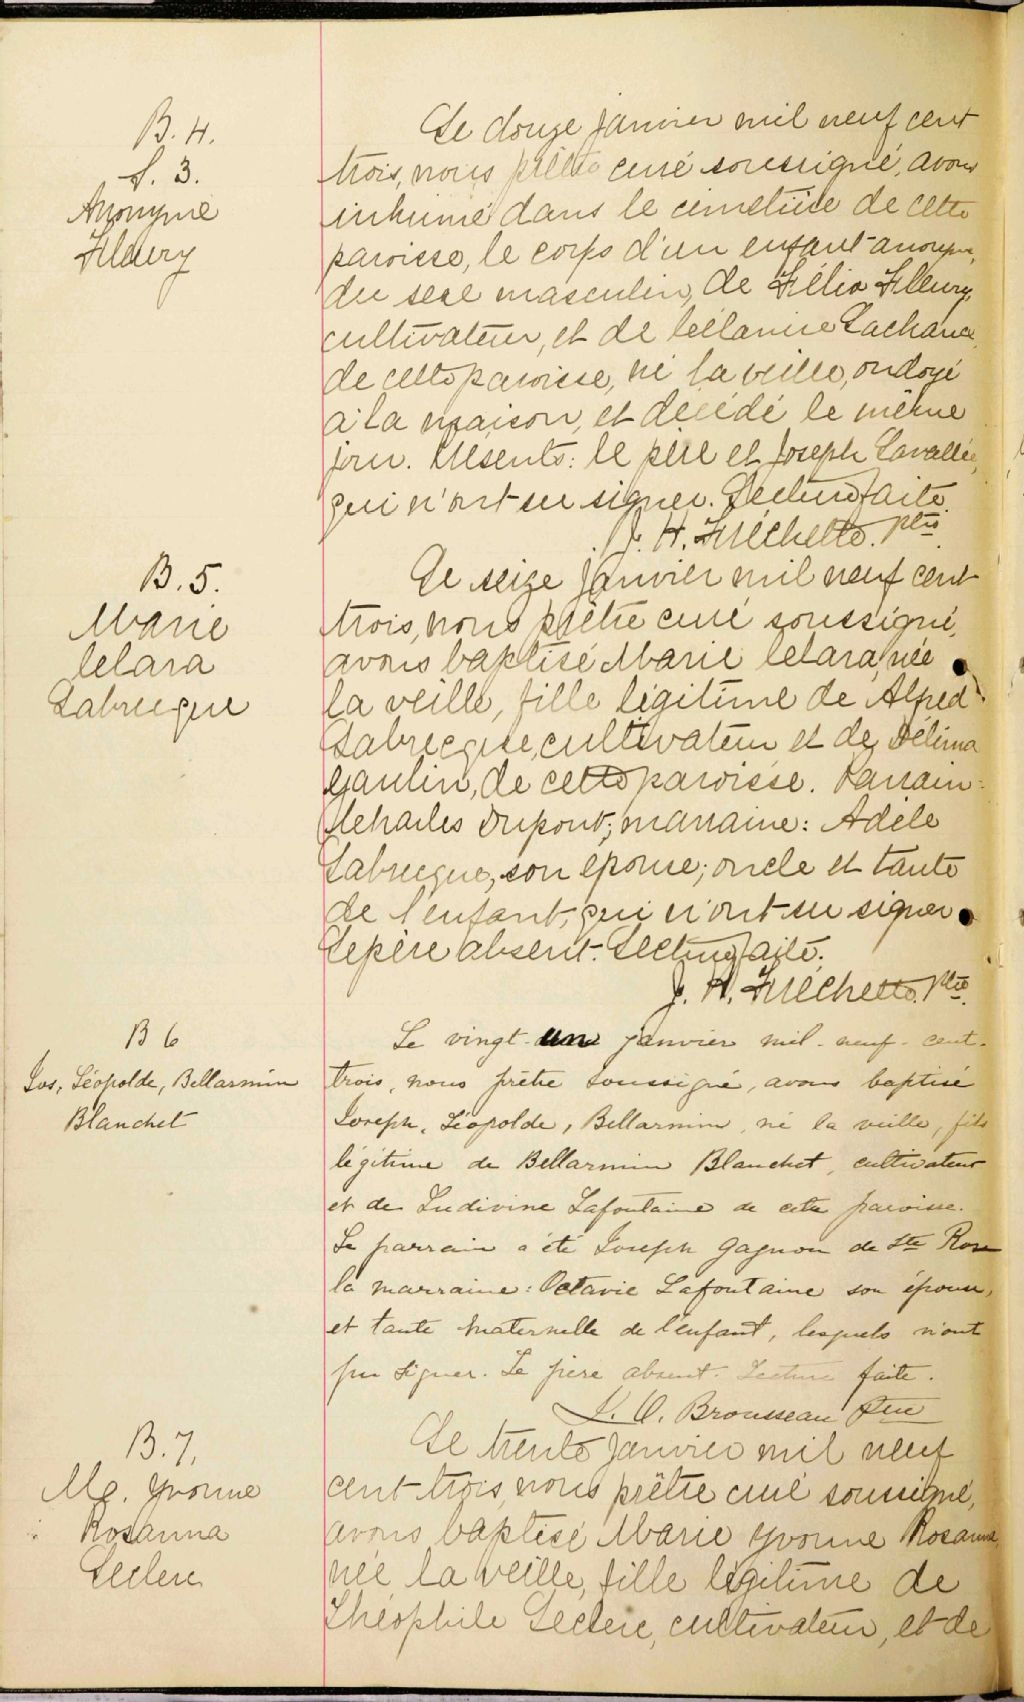 B. 4.
S. 3.
Anonyme
Fleury
Le douze janvier mil neuf cent
trois, nous prêtre curé soussigné, avons
inhumé dans le cimetière de cette
paroisse, le corps d'un enfant anonyme,
du sexe masculin, de Félix Fleury,
cultivateur, et de Célanire Lachance,
de cette paroisse, né la veille, ondoyé
à la maison, et décédé le même
jour. Présents: le père et Joseph Lavallée,
qui n'ont su signer. Lecture faite.
J. H. Fréchette. ptre
B. 5.
Marie
Clara
Labrecque
Le seize janvier mil neuf cent
trois, nous prêtre curé soussigné,
avons baptisé Marie Clara, née
la veille, fille légitime de Alfred
Labrecque, cultivateur et de Délima
Gaulin, de cette paroisse. Parrain:
Charles Dupont; marraine: Adèle
Labrecque, son épouse; oncle et tante
de l'enfant, qui n'ont su signer.
Le père absent. Lecture faite.
J. H. Fréchette. ptre.
B 6
Jos, Léopolde, Bellarmin
Blanchet
Le vingt-un janvier mil-neuf-cent-
trois, nous prêtre soussigné, avons baptisé
Joseph, Léopolde, Bellarmin, né la veille, fils
légitime de Bellarmin Blanchet, cultivateur
et de Ludivine Lafontaine de cette paroisse.
Le parrain a été Joseph Gagnon de Ste Rose
la marraine: Octavie Lafontaine son épouse,
et tante maternelle de l'enfant, lesquels n'ont
pu signer. Le père absent. Lecture faite.
J. O. Brousseau Ptre
B. 7.
Me. Yvonne
Rosanna
Leclerc
Le trente janvier mil neuf
cent trois, nous prêtre curé soussigné,
avons baptisé Marie Yvonne Rosanna,
née la veille, fille légitime de
Théophile Leclerc, cultivateur, et de